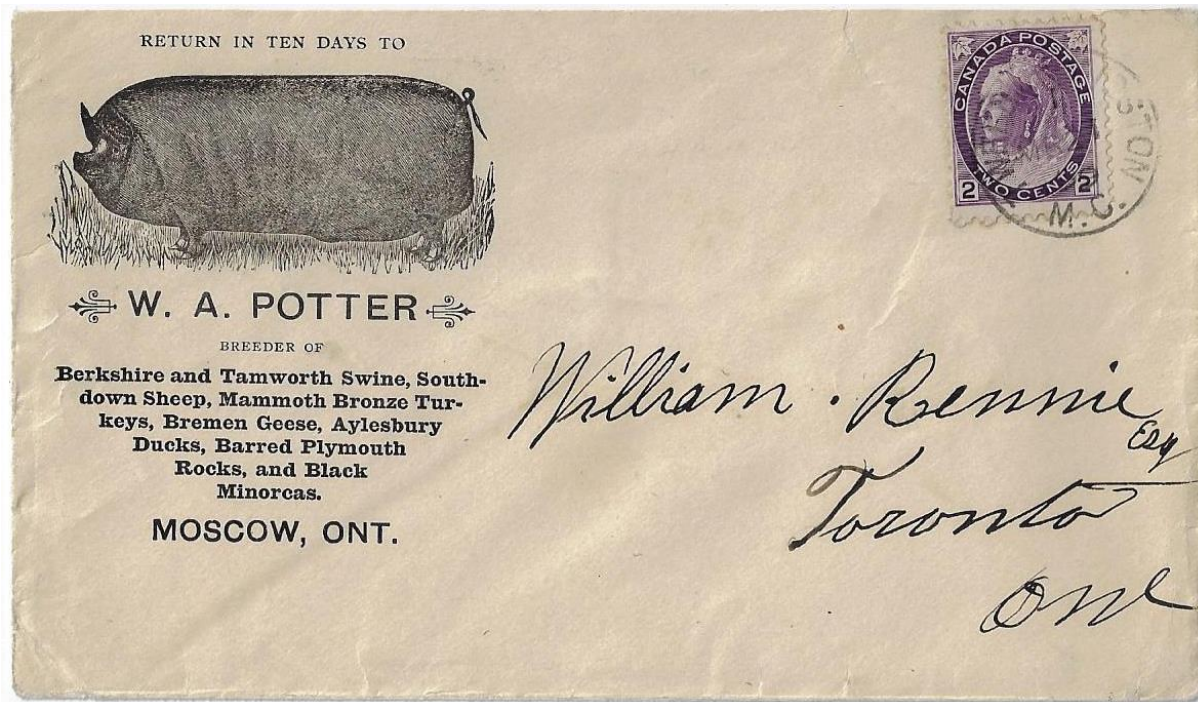 RETURN IN TEN DAYS TO
W. A. POTTER
BREEDER OF
Berkshire and Tamworth Swine, South-
down Sheep, Mammoth Bronze Tur-
keys, Bremen Geese, Aylesbury
Ducks, Barred Plymouth
Rocks, and Black
Minorcas.
MOSCOW, ONT.
CANADA POSTAGE
2 TWO CENTS 2
STON
M.C.
William . Rennie
Esq
Toronto
Ont